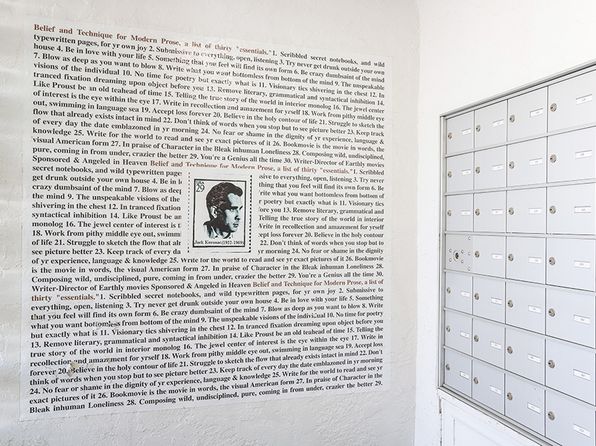 Belief and Technique for Modern Prose, a list of thirty "essentials."1. Scribbled secret notebooks, and wild
typewritten pages, for yr own joy 2. Submissive to everything, open, listening 3. Try never get drunk outside your own
house 4. Be in love with your life 5. Something that you feel will find its own form 6. Be crazy dumbsaint of the mind
7. Blow as deep as you want to blow 8. Write what you want bottomless from bottom of the mind 9. The unspeakable
visions of the individual 10. No time for poetry but exactly what is 11. Visionary tics shivering in the chest 12. In
tranced fixation dreaming upon object before you 13. Remove literary, grammatical and syntactical inhibition 14.
Like Proust be an old teahead of time 15. Telling the true story of the world in interior monolog 16. The jewel center
of interest is the eye within the eye 17. Write in recollection and amazement for yrself 18. Work from pithy middle eye
out, swimming in language sea 19. Accept loss forever 20. Believe in the holy contour of life 21. Struggle to sketch the
flow that already exists intact in mind 22. Don't think of words when you stop but to see picture better 23. Keep track
of every day the date emblazoned in yr morning 24. No fear or shame in the dignity of yr experience, language &
knowledge 25. Write for the world to read and see yr exact pictures of it 26. Bookmovie is the movie in words, the
visual American form 27. In praise of Character in the Bleak inhuman Loneliness 28. Composing wild, undisciplined,
pure, coming in from under, crazier the better 29. You're a Genius all the time 30. Writer-Director of Earthly movies
Sponsored & Angeled in Heaven Belief and Technique for Modern Prose, a list of thirty "essentials."1. Scribbled
secret notebooks, and wild typewritten pages
get drunk outside your own house 4. Be in l
crazy dumbsaint of the mind 7. Blow as deep
the mind 9. The unspeakable visions of the
shivering in the chest 12. In tranced fixation
inhibition 14. Like Proust be an old
monolog 16. The jewel center of interest is
18. Work from pithy middle eye out, swimming
of life 21. Struggle to sketch the flow that alr
see picture better 23. Keep track of every da
sive to everything, open, listening 3. Try never
thing that you feel will find its own form 6. Be
write what you want bottomless from bottom of
poetry but exactly what is 11. Visionary tics
fore you 13. Remove literary, grammatical and syntactical
Telling the true story of the world in interior
Write in recollection and amazement for yrself
cept loss forever 20. Believe in the holy contour
22. Don't think of words when you stop but to
yr morning 24. No fear or shame in the dignity
29
USA
Jack Kerouac (1922-1969)
of yr experience, language & knowledge 25. Write for the world to read and see yr exact pictures of it 26. Bookmovie
is the movie in words, the visual American form 27. In praise of Character in the Bleak inhuman Loneliness 28.
Composing wild, undisciplined, pure, coming in from under, crazier the better 29. You're a Genius all the time 30.
Writer-Director of Earthly movies Sponsored & Angeled in Heaven Belief and Technique for Modern Prose, a list of
thirty "essentials."1. Scribbled secret notebooks, and wild typewritten pages, for yr own joy 2. Submissive to
everything, open, listening 3. Try never get drunk outside your own house 4. Be in love with your life 5. Something
that you feel will find its own form 6. Be crazy dumbsaint of the mind 7. Blow as deep as you want to blow 8. Write
what you want bottomless from bottom of the mind 9. The unspeakable visions of the individual 10. No time for poetry
but exactly what is 11. Visionary tics shivering in the chest 12. In tranced fixation dreaming upon object before you
13. Remove literary, grammatical and syntactical inhibition 14. Like Proust be an old teahead of time 15. Telling the
true story of the world in interior monolog 16. The jewel center of interest is the eye within the eye 17. Write in
recollection and amazement for yrself 18. Work from pithy middle eye out, swimming in language sea 19. Accept loss
forever 20. Believe in the holy contour of life 21. Struggle to sketch the flow that already exists intact in mind 22. Don't
think of words when you stop but to see picture better 23. Keep track of every day the date emblazoned in yr morning
24. No fear or shame in the dignity of yr experience, language & knowledge 25. Write for the world to read and see yr
exact pictures of it 26. Bookmovie is the movie in words, the visual American form 27. In praise of Character in the
Bleak inhuman Loneliness 28. Composing wild, undisciplined, pure, coming in from under, crazier the better 29.